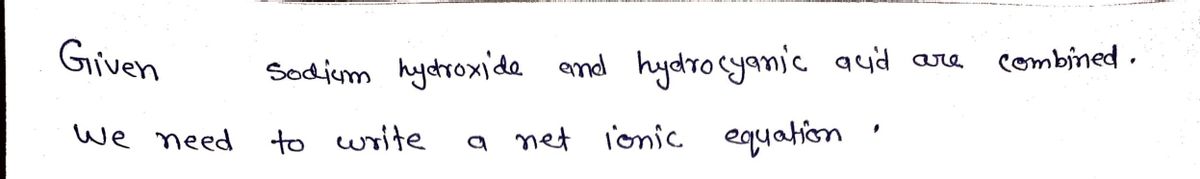 Given sodium hydroxide and hydrocyanic acid are combined.
We need to write a net ionic equation .